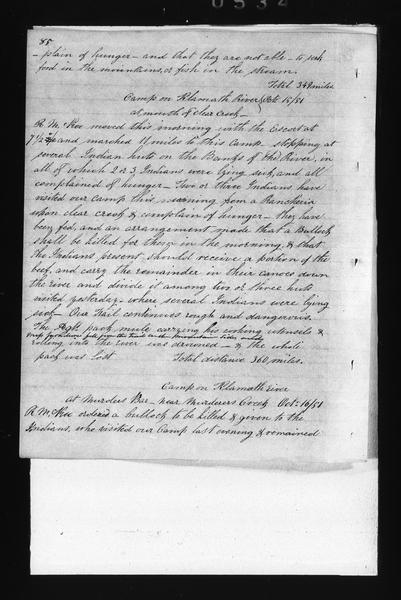 0532
85
-plain of hunger - and that they are not able - to seek
food in the mountains, or fish in the stream.
Total 349 miles
Camp on Klamath River Oct: 15/51
at mouth of Clear Creek
R. McKee moved this morning with the Escort at
7 1/2 and marched 11 miles to this Camp. stopping at
several Indian huts on the Banks of the River, in
all of which 2 or 3 Indians were lying sick, and all
complained of hunger - Two or three Indians have
visited our Camp this evening from a Rancheria
upon clear creek & complain of hunger - they have
been fed, and an arrangement made that a Bullock
shall be killed for them in the morning, & that
the Indians present should receive a portion of the
beef, and carry the remainder in their canoes down
the river and divide it among two or three huts
visited yesterday - where several Indians were lying
sick - Our Trail continues rough and dangerous.
The pack mule carrying his cooking utensils &
fell from the Trail on the Mountain Side, and
rolling into the river was drowned - & the whole
pack was Lost Total distance 360 miles.
Camp on Klamath River
at Murders Bar - near Murderers Creek Oct: 16/51
R. McKee ordered a bullock to be killed & given to the
Indians, who visited our Camp last evening & remained